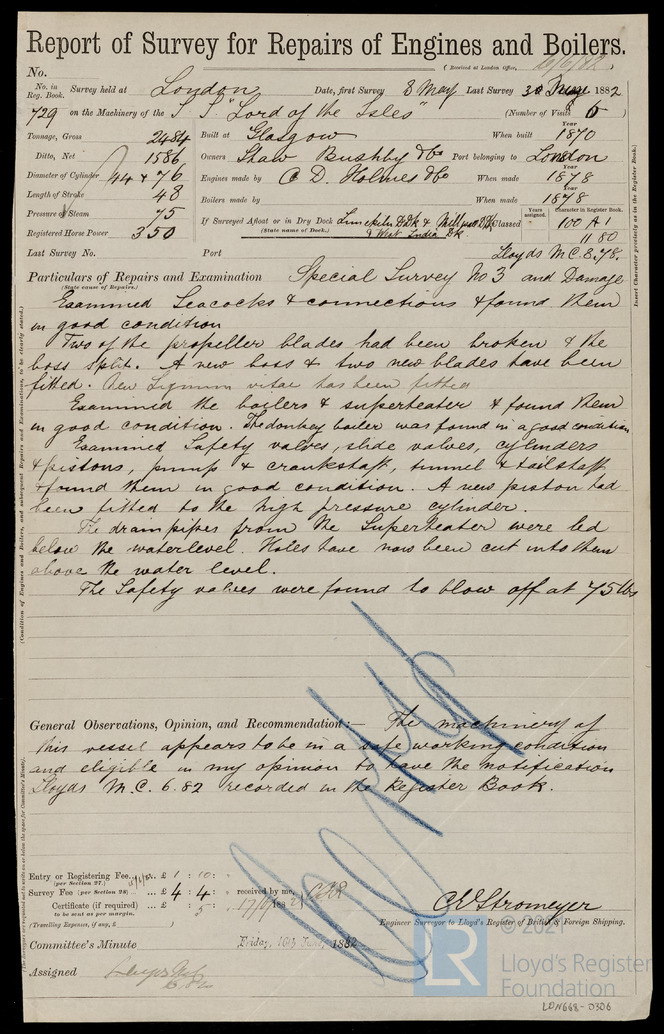 Report of Survey for Repairs of Engines and Boilers.
(Received at London Office, 16/6/82)
No.
No. in Reg. Book. Survey held at London Date, first Survey 8 May Last Survey 1882
729 on the Machinery of the S S "Lord of the Isles" (Number of Visits 6)
Tonnage, Gross 2484 Built at Glasgow When built Year 1870
Ditto, Net 1586 Owners Shaw Bushby & Co Port belonging to London
Diameter of Cylinder 44 & 76 Engines made by C D. Holmes & Co When made Year 1878
Length of Stroke 48 Boilers made by When made Year 1878
Pressure of Steam 75 If Surveyed Afloat or in Dry Dock Limekiln D Dk & Millwall D Dk Classed Years assigned. Character in Register Book. 100 A 1
Registered Horse Power 350 (State name of Dock.) & West India Dk 11 80
Last Survey No. Port Lloyds M.C. 8.78.
Particulars of Repairs and Examination Special Survey No 3 and Damage
(State cause of Repairs.)
Examined Seacocks & connections & found them
in good condition
Two of the propeller blades had been broken & the
boss split. A new boss & two new blades have been
fitted. New Lignum vitae has been fitted
Examined the boilers & superheater & found them
in good condition. The donkey boiler was found in a good condition
Examined Safety valves, slide valves, cylinders
& pistons, pump & crankshaft, tunnel & tailshaft
& found them in good condition. A new piston had
been fitted to the high pressure cylinder.
The drain pipes from the Superheater were led
below the waterlevel. Holes have now been cut into them
above the water level.
The Safety valves were found to blow off at 75 lbs
General Observations, Opinion, and Recommendation:— The machinery of
this vessel appears to be in a safe working condition
and eligible in my opinion to have the notification
Lloyds M.C. 6.82 recorded in the Register Book.
Entry or Registering Fee. ... £ 1 : 10 :
(per Section 27.)
Survey Fee (per Section 28) ... £ 4 : 4 : received by me,
Certificate (if required) ... £ 5 17/6/1882
to be sent as per margin.
(Travelling Expenses, if any, £ )
C E Stromeyer
Engineer Surveyor to Lloyd's Register of British & Foreign Shipping.
Committee's Minute Friday, 16th June, 1882
Assigned Lloyds M.C. 6.82
(Condition of Engines and Boilers, and subsequent Repairs and Examinations, to be clearly stated.)
Insert Character precisely as in the Register Book.
© 2021
LR
Lloyd's Register
Foundation
LDN668-0306